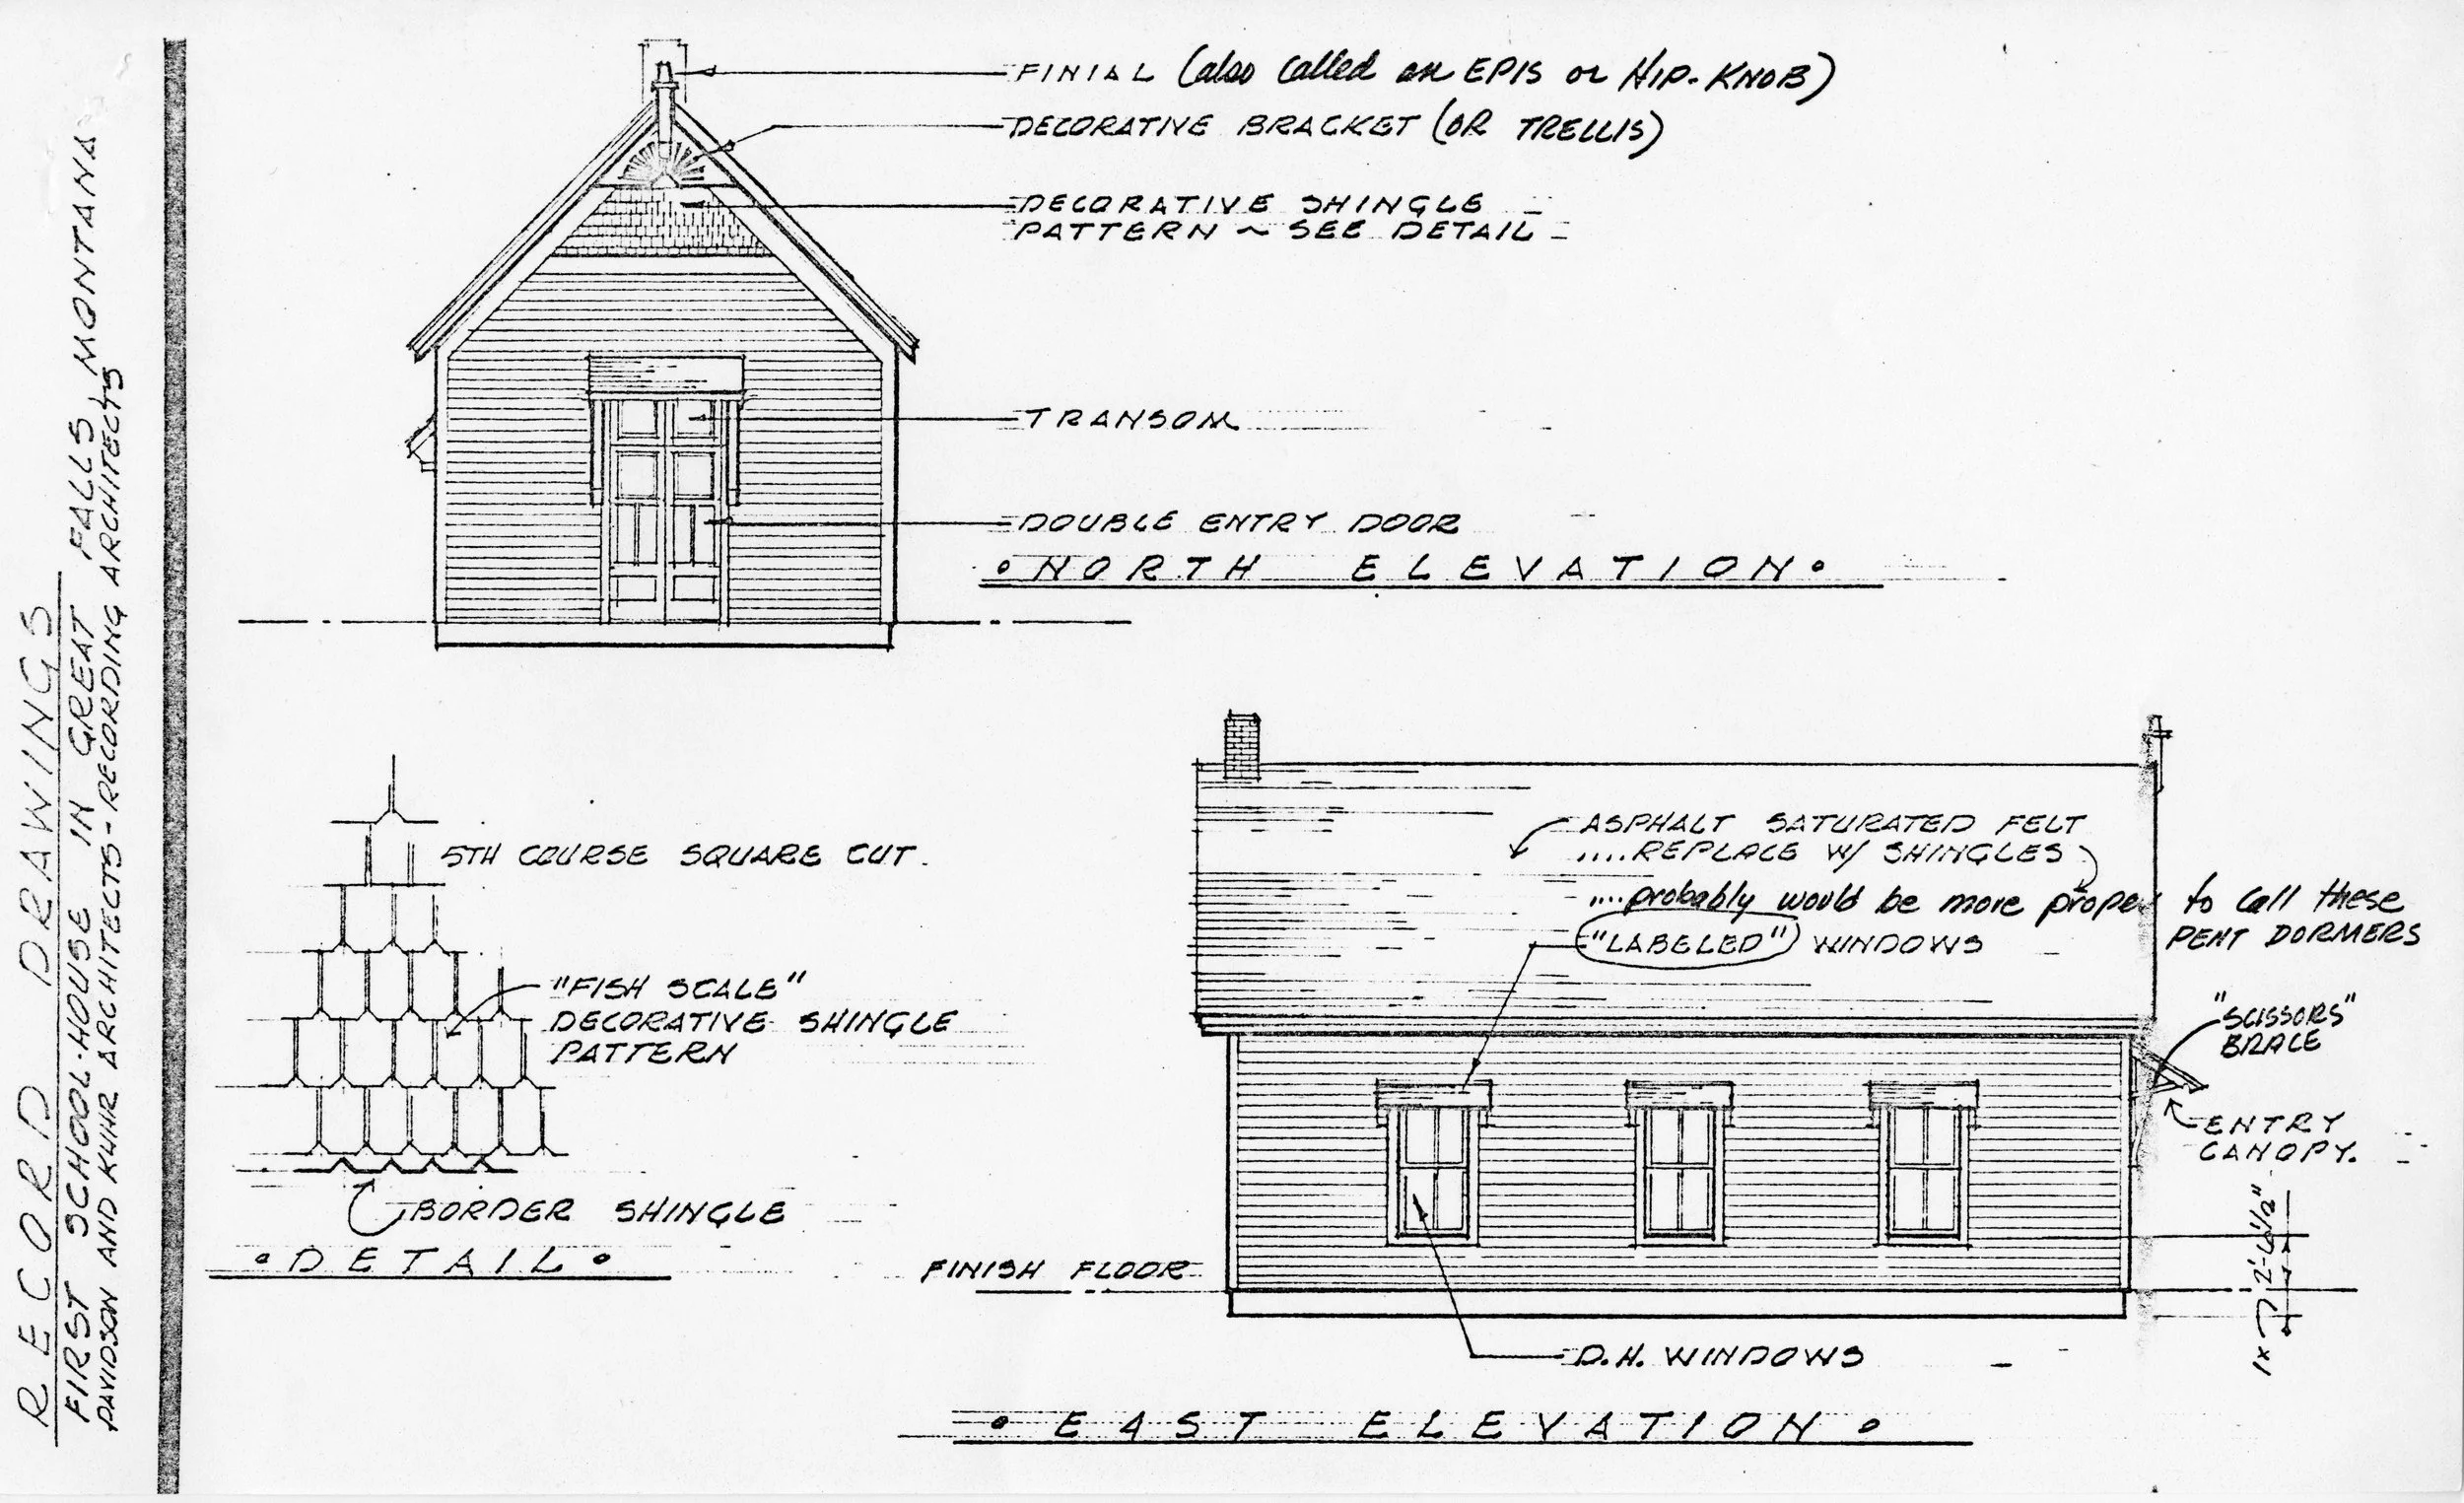 RECORD DRAWINGS
FIRST SCHOOL-HOUSE IN GREAT FALLS, MONTANA
DAVIDSON AND KUHR ARCHITECTS-RECORDING ARCHITECTS
FINIAL (also called an EPIS or HIP-KNOB)
DECORATIVE BRACKET (OR TRELLIS)
DECORATIVE SHINGLE
PATTERN ~ SEE DETAIL
TRANSOM
DOUBLE ENTRY DOOR
• NORTH ELEVATION •
5TH COURSE SQUARE CUT.
"FISH SCALE"
DECORATIVE SHINGLE
PATTERN
BORDER SHINGLE
• DETAIL •
ASPHALT SATURATED FELT
....REPLACE W/ SHINGLES
....probably would be more proper to call these
PENT DORMERS
"LABELED" WINDOWS
"SCISSORS"
BRACE
ENTRY
CANOPY.
2'-6½"
FINISH FLOOR
D.H. WINDOWS
• EAST ELEVATION •